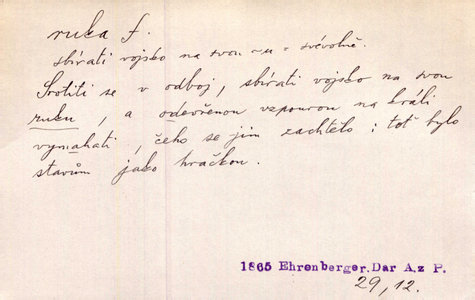 ruka f.
sbírati vojsko na svou ~u = svévolně.
Srotiti se v odboj, sbírati vojsko na svou
ruku, a odevřenou vzpourou na králi
vymáhati, čeho se jim zachtělo: toť bylo
stavům jako hračkou.
1865 Ehrenberger. Dar A. z P.
29, 12.